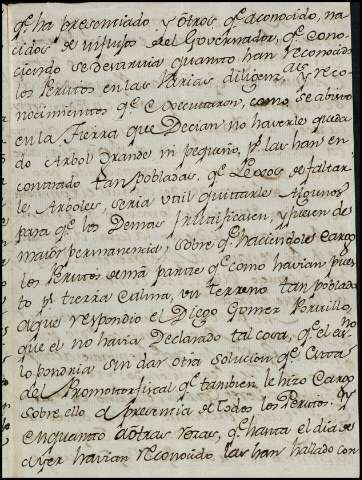 qᵉ ha presenciado y otros qᵉ a conocido, na
cidos de influjo del Governador, qᵉ cono
ciendo se devaria quanto han reconocido
los Peritos en las Varias diligencᵃˢ, y reco
nocimientos qᵉ executaron, como se a bisto
en la Tierra que Decian no haverle queda
do Arbol Grande ni pequeño, y las han en
contrado tan pobladas, qᵉ Lexos de faltar
le Arboles, seria util quittarle Algunos
para qᵉ los Demas fructtifiquen, y fuesen de
maior permanencia; sobre qᵉ haciendole Cargo
los Peritos de mã parttte qᵉ como havian pues
to pʳ tierra Calma, un terreno tan poblado
a que respondio el Diego Gomez Portillo,
que el no havia Declarado tal cosa, qᵉ el asˢⁿᵒ
lo pondria sin dar otra solucion qᵉ esta
del Promottor fiscal qᵉ tambien le hizo Cargo
sobre ello a presencia de todos los Peritos. Y
en quanto a otras rozas, qᵉ hasta el dia de
ayer havian reconocido, las han hallado con